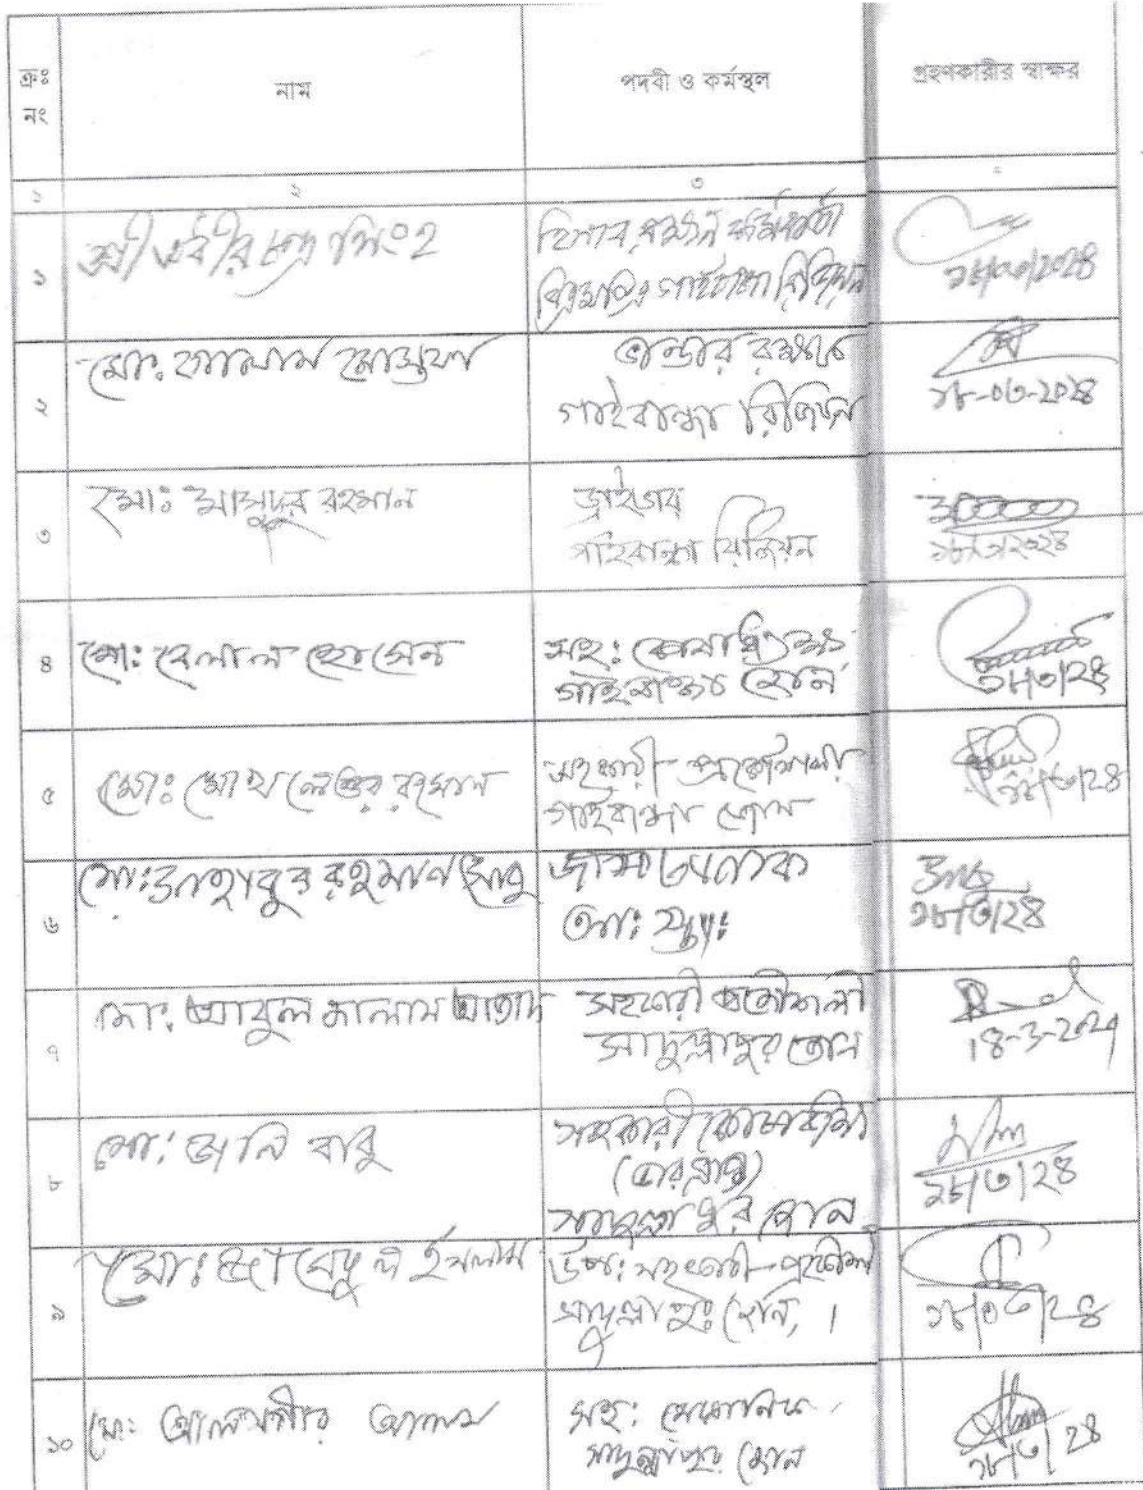 ক্রঃ
নং
নাম
পদবী ও কর্মস্থল
গ্রহণকারীর স্বাক্ষর
১
২
৩
১
শ্রী চন্দ্র সিংহ
গাইবান্ধা রিজিয়ন
১৮/০৩/২০২৪
২
মোঃ গোলাম মোস্তফা
ভান্ডার রক্ষক
গাইবান্ধা রিজিয়ন
১৮-০৩-২০২৪
৩
মোঃ মাসুদুর রহমান
ড্রাইভার
গাইবান্ধা রিজিয়ন
১৮/৩/২০২৪
৪
মোঃ বেলাল হোসেন
সহঃ কোষাধ্যক্ষ
গাইবান্ধা জোন
১৮/৩/২৪
৫
মোঃ মোখলেছুর রহমান
সহকারী প্রকৌশলী
গাইবান্ধা জোন
১৮/৩/২৪
৬
মোঃ মাহাবুর রহমান বাবু
১৮/৩/২৪
৭
মোঃ আবুল কালাম আজাদ
সহকারী প্রকৌশলী
সাদুল্লাপুর জোন
18-3-2024
৮
মোঃ জনি বাবু
সহকারী কোষাধ্যক্ষ
(ভারপ্রাপ্ত)
সাদুল্লাপুর জোন
১৮/৩/২৪
৯
মোঃ ইসলাম
উপঃ সহকারী প্রকৌশলী
সাদুল্লাপুঃ জোন, ।
১৮/০৩/২৪
১০
মোঃ আলমগীর আলম
সহঃ মেকানিক
সাদুল্লাপুর জোন
১৮/৩/২৪